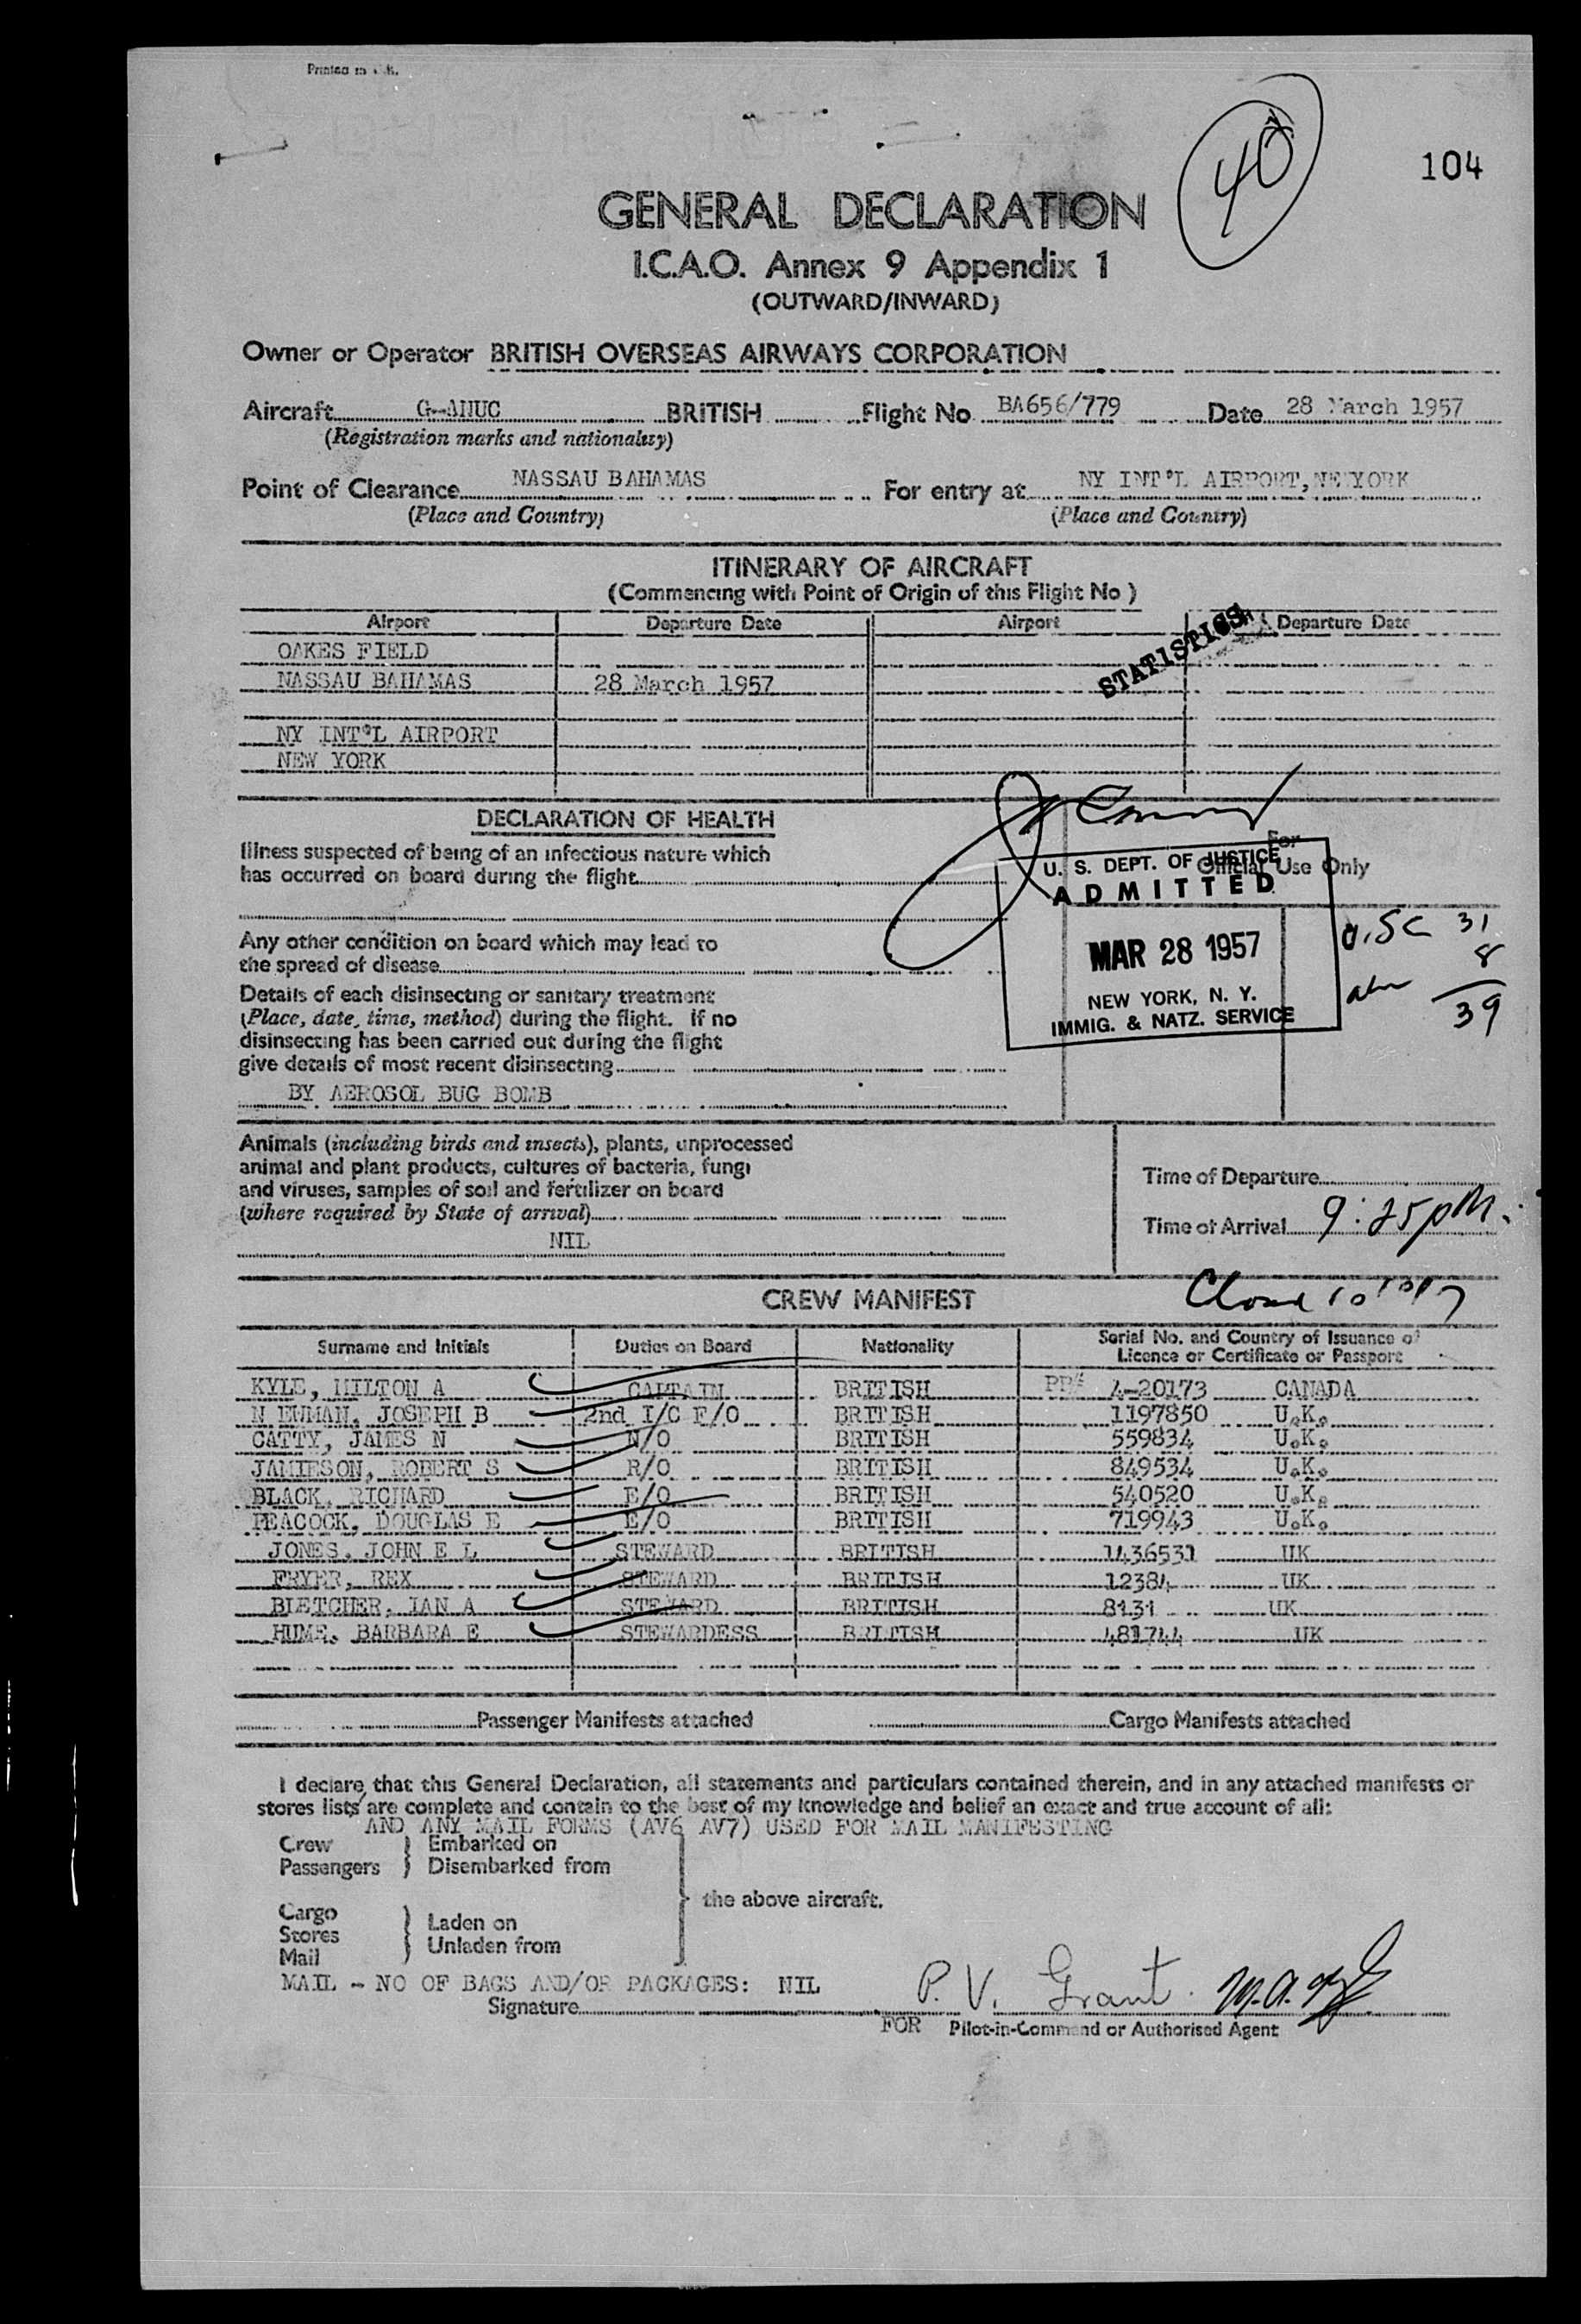 Printed in
40
104
GENERAL DECLARATION
I.C.A.O. Annex 9 Appendix 1
(OUTWARD/INWARD)
Owner or Operator BRITISH OVERSEAS AIRWAYS CORPORATION
Aircraft G-ANUC BRITISH Flight No BA656/779 Date 28 March 1957
(Registration marks and nationality)
Point of Clearance NASSAU BAHAMAS For entry at NY INT'L AIRPORT, NEWYORK
(Place and Country) (Place and Country)
ITINERARY OF AIRCRAFT
(Commencing with Point of Origin of this Flight No )
Airport Departure Date Airport Departure Date
STATISTICS
OAKES FIELD
NASSAU BAHAMAS 28 March 1957
NY INT'L AIRPORT
NEW YORK
DECLARATION OF HEALTH
For
Official Use Only
Illness suspected of being of an infectious nature which
has occurred on board during the flight
U. S. DEPT. OF JUSTICE
ADMITTED
MAR 28 1957
NEW YORK, N. Y.
IMMIG. & NATZ. SERVICE
31
8
39
Any other condition on board which may lead to
the spread of disease
Details of each disinsecting or sanitary treatment
(Place, date, time, method) during the flight. If no
disinsecting has been carried out during the flight
give details of most recent disinsecting
BY AEROSOL BUG BOMB
Animals (including birds and insects), plants, unprocessed
animal and plant products, cultures of bacteria, fungi
and viruses, samples of soil and fertilizer on board
(where required by State of arrival)
NIL
Time of Departure
Time of Arrival 9:25pM.
CREW MANIFEST
Surname and Initials Duties on Board Nationality Serial No. and Country of Issuance of
Licence or Certificate or Passport
KYLE, MILTON A CAPTAIN BRITISH PP# 4-20173 CANADA
N EWMAN, JOSEPH B 2nd I/C F/O BRITISH 1197850 U.K.
CATTY, JAMES N N/O BRITISH 559834 U.K.
JAMIESON, ROBERT S R/O BRITISH 849534 U.K.
BLACK, RICHARD E/O BRITISH 540520 U.K.
PEACOCK, DOUGLAS E E/O BRITISH 719943 U.K.
JONES, JOHN E L STEWARD BRITISH 1436531 UK
FRYER, REX STEWARD BRITISH 12384 UK
BLETCHER, IAN A STEWARD BRITISH 8131 UK
HUME, BARBARA E STEWARDESS BRITISH 481744 UK
Passenger Manifests attached Cargo Manifests attached
I declare that this General Declaration, all statements and particulars contained therein, and in any attached manifests or
stores lists are complete and contain to the best of my knowledge and belief an exact and true account of all:
AND ANY MAIL FORMS (AV6 AV7) USED FOR MAIL MANIFESTING
Crew } Embarked on
Passengers } Disembarked from
the above aircraft.
Cargo
Stores } Laden on
Mail } Unladen from
MAIL - NO OF BAGS AND/OR PACKAGES: NIL
Signature P. V. Grant.
FOR Pilot-in-Command or Authorised Agent